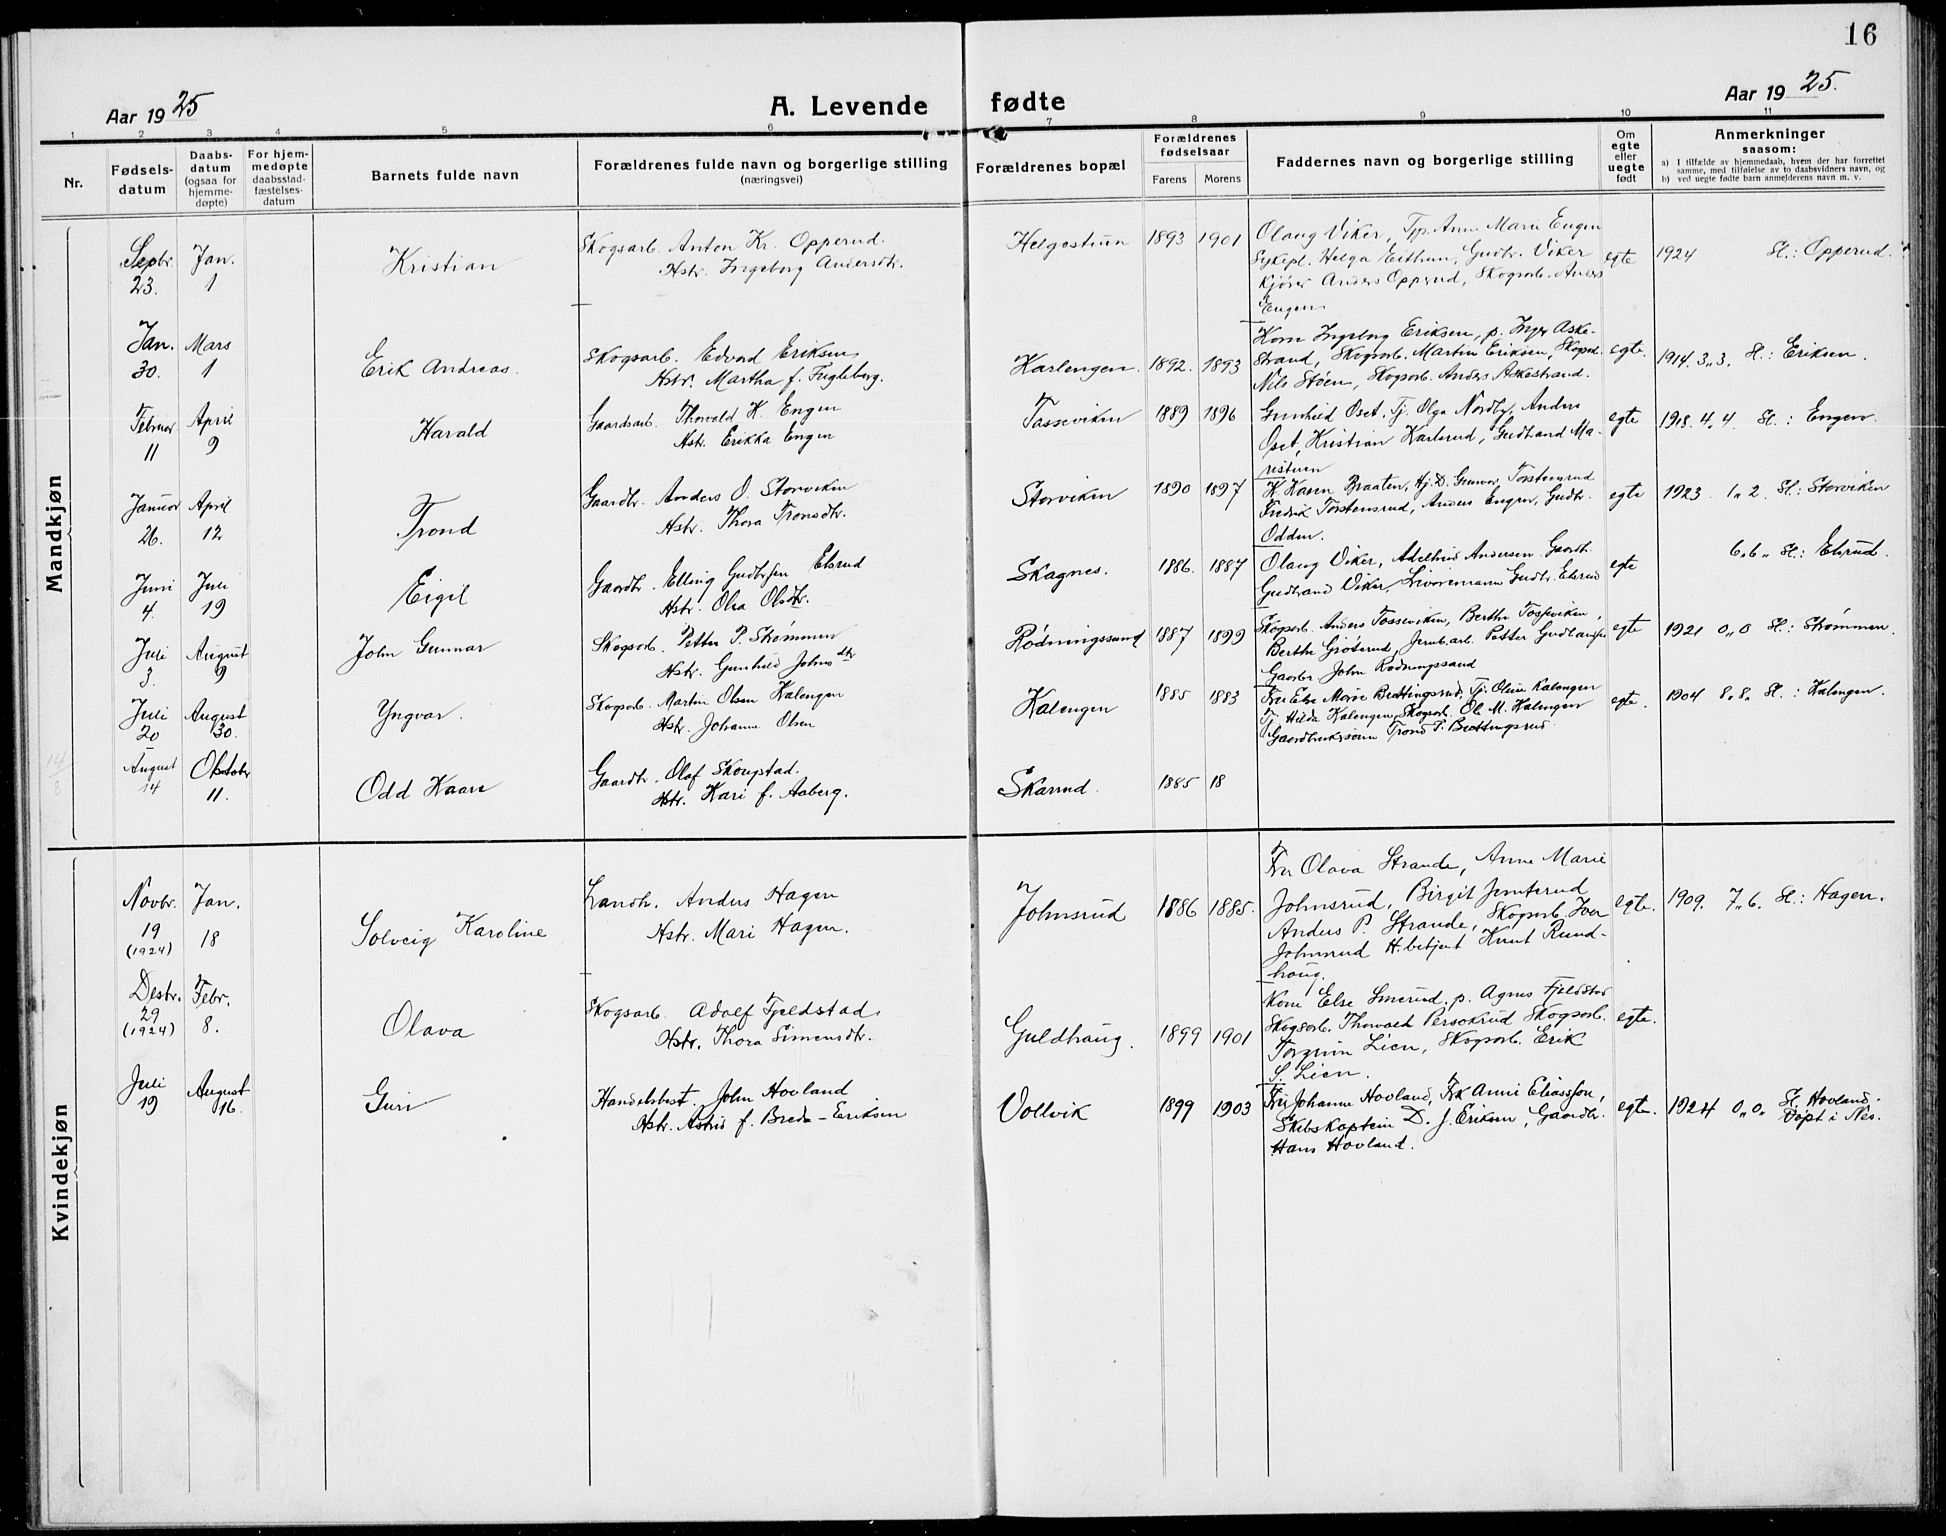 16
Aar 1925
A. Levende fødte
Aar 1925.
1 2 3 4 5 6 7 8 9 10 11
Nr.
Fødsels-
datum
Daabs-
datum
(ogsaa for
hjemme-
døpte)
For hjem-
medøpte
daabsstad-
fæstelses-
datum
Barnets fulde navn
Forældrenes fulde navn og borgerlige stilling
(næringsvei)
Forældrenes bopæl
Forældrenes
fødselsaar
Farens Morens
Faddernes navn og borgerlige stilling
Om
egte
eller
uegte
født
Anmerkninger
saasom:
a) I tilfælde av hjemmedaab, hvem der har forrettet
samme, med tilføielse av to daabsvidners navn, og
b) ved uegte fødte barn anmelderens navn m. v.
Mandkjøn
Septbr. 23. Jan. 1 Kristian
Skogsarb. Anton Kr. Opperud.
Hstr. Ingeborg Andersdtr.
Helgestuen 1893 1901
Olaug Viker, Tjp. Anne Marie Engen
Sykepl. Helga Eithun, Gudbr. Viker
Kjører Anders Opperud, Skogsarb. Anders
Engen
egte 1924 Sl.: Opperud.
Jan. 30. Mars 1 Erik Andreas.
Skogsarb. Edvard Eriksen
Hstr. Martha f. Fugleberg.
Karlengen. 1892. 1893
Kone Ingeborg Eriksen, p. Inger Aske-
strand, Skogsarb. Martin Eriksen, Skogsarb.
Nils Støen, Skogsarb. Anders Askestrand.
egte. 1914. 3,,3. Sl.: Eriksen.
Februar 11 April 9 Harald
Gaardsarb. Thorvald K. Engen
Hstr. Erikka Engen
Tosseviken 1889 1896
Gunhild Oset, Tj. Olga Nordby, Anders
Oset, Kristian Karlsrud, Gudbrand Ma-
ristuen
egte 1918. 4,,4 Sl.: Engen.
Januar 26. April 12 Trond
Gaardbr. Anders O. Storviken
Hstr. Thora Tronsdtr.
Storviken 1890 1897
K. Karen Braaten, Hj. D. Gunvor Torstensrud
Fredrik Torstensrud, Anders Engen, Gudbr.
Odden.
egte 1923 1,,2. Sl.: Storviken
Juni 4. Juli 19 Eigil
Gaardbr. Elling Gudbrsen Elsrud
Hstr. Olea Olsdtr.
Skagnes. 1886. 1887
Olaug Viker, Adelheid Andersen Gaardb.
Gudbrand Viker, Gudbr. Elsrud
egte 6,,6,, Sl.: Elsrud.
Juli 3. August 9 John Gunnar
Skogsarb. Petter P. Strømmen
Hstr. Gunhild Johnsdtr
Rødningssand 1887 1899
Skogsarb. Anders Tosseviken, Berthe Tosseviken,
Berthe Grøterud, Jernb.arb. Petter
Gaardbr John Rødningssand
egte 1921 0,,0 Sl.: Strømmen.
Juli 20 August 30. Yngvar.
Skogsarb. Martin Olsen Kalengen
Hstr. Johanne Olsen
Kalengen 1885 1883
Fru Else Marie Brattingsrud, Tj. Oline Kalengen
Tj. Hilda Kalengen, Skogsarb. Ole M. Kalengen
Gaardbrukersønn Trond P. Brattingsrud
egte. 1904 8,,8. Sl.: Kalengen.
14/8 August 14 Oktober 11. Odd Kaare
Gaardbr. Olaf Skougstad.
Hstr. Kari f. Aaberg.
Skarrud. 1885 18
Kvindekjøn
Novbr. 19 (1924) Jan. 18 Solveig Karoline
Landh. Anders Hagen
Hstr. Mari Hagen.
Johnsrud 1886 1885.
Fru Olava Strande, Anne Marie
Johnsrud, Birgit Jemterud
Anders P. Strande, Skogsarb. Iver
Johnsrud H. betjent Knut Rund-
haug.
egte. 1909. 7,,6. Sl.: Hagen.
Desbr. 29 (1924) Febr. 8. Olava
Skogsarb. Adolf Fjeldstad.
Hstr. Thora Simensdtr.
Guldhaug. 1899 1901
Kone Else Smerud, p. Agnes Fjeldstad
Skogsarb. Thorvald Persokrud Skogsarb.
Torgrim Lien, Skogsarb. Erik
S. Lien.
egte.
Juli 19 August 16. Guri
Handelsbest. John Hovland
Hstr. Astrid f. Breda-Eriksen
Vollvik 1899 1903
Fru Johanne Hovland, Frk Anni Eliassson,
Skibskaptein D. J. Eriksen, Gaardbr.
Hans Hovland.
egte. 1924 0,,0. Sl. Hovland.
Døpt i Nes.